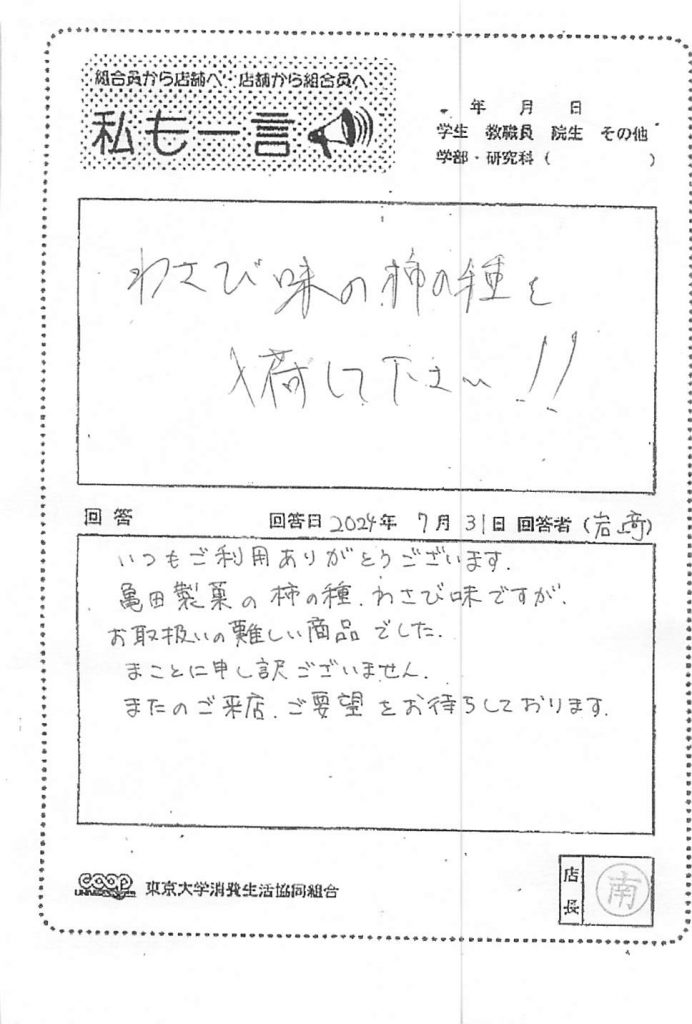 組合員から店舗へ・店舗から組合員へ
私も一言
年 月 日
学生 教職員 院生 その他
学部・研究科（ ）
わさび味の柿の種を
入荷して下さい!!
回答 回答日 2024年 7月 31日 回答者（岩崎）
いつもご利用ありがとうございます.
亀田製菓の柿の種.わさび味ですが.
お取扱いの難しい商品でした.
まことに申し訳ございません.
またのご来店.ご要望をお待ちしております.
coop 東京大学消費生活協同組合
店長 南